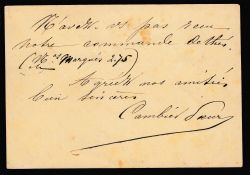 N'avez vs pas reçu
notre commande de thés
(Mon Marquis 2.75)
Agréez nos amitiés
bien sincères
Cambier Sœur